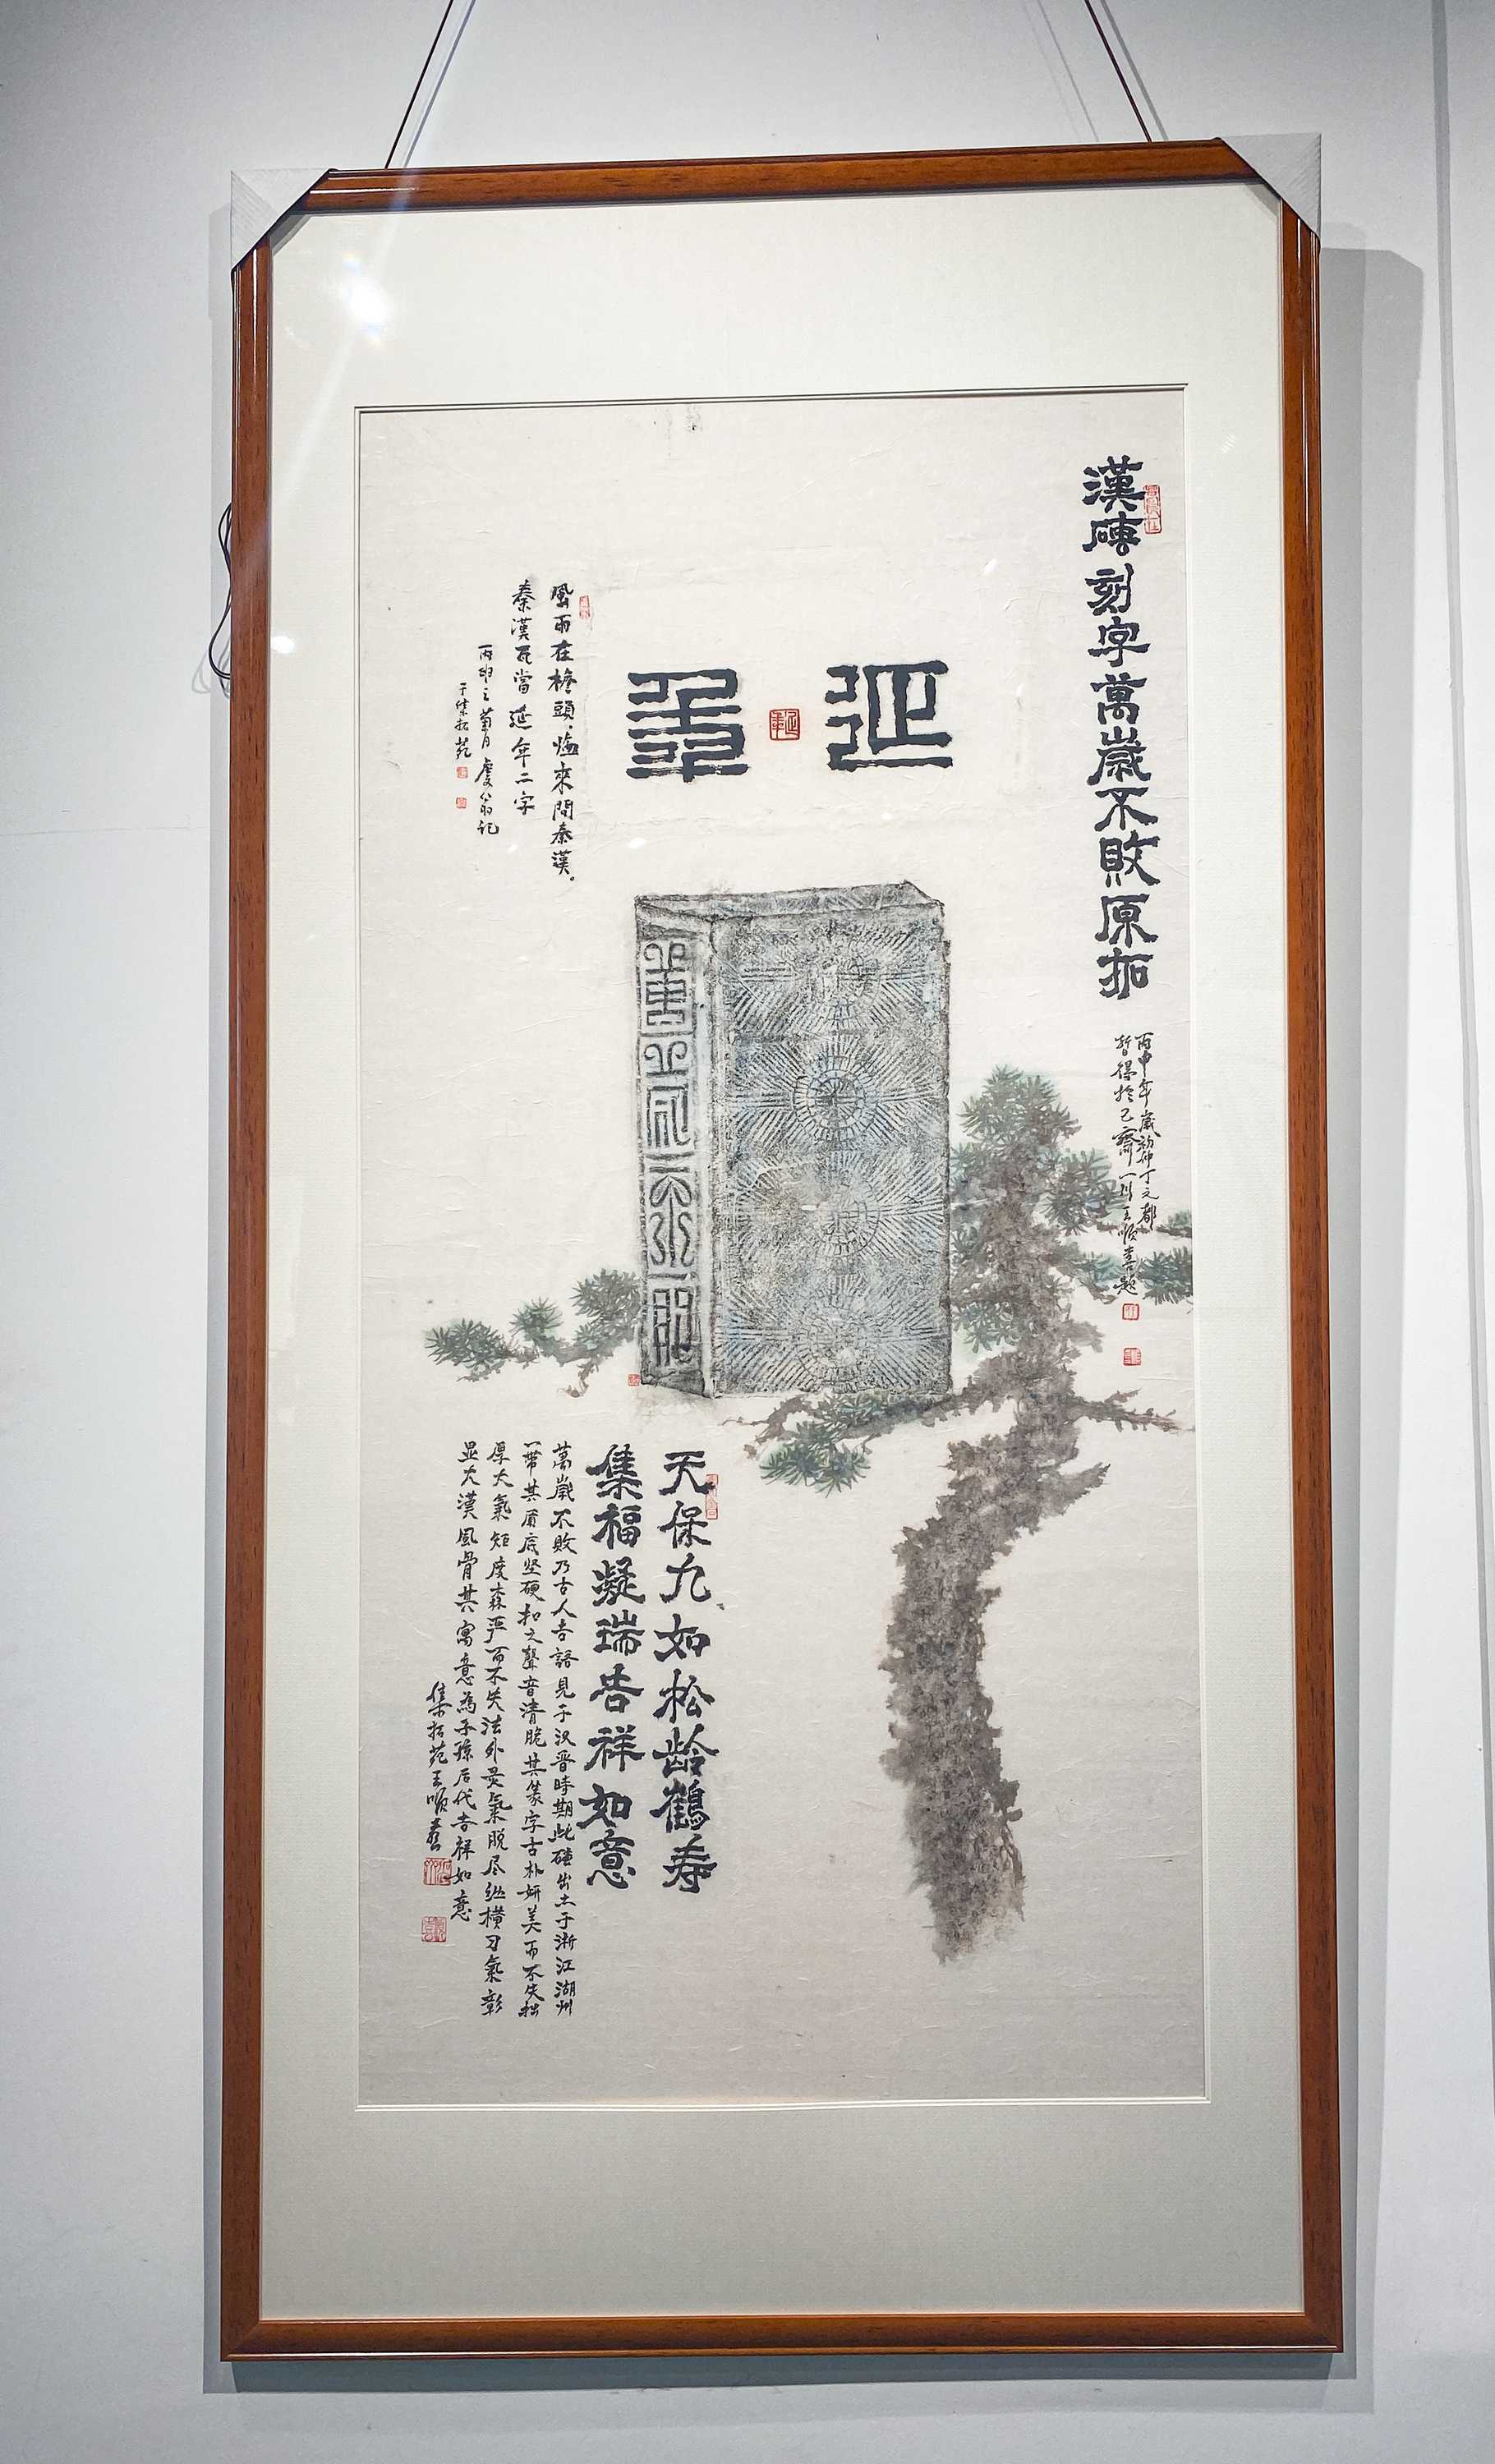 漢磚刻字萬歲不敗原拓
丙申年歲初仲丁之都
哲得於己齋一川王順喜題
延年
延年
風雨在檐頭悔來問秦漢。
秦漢瓦當延年二字
丙申之菊月虔翁記
于集拓苑
萬歲不敗
天保九如松龄鶴寿
集福凝瑞吉祥如意
萬歲不敗乃古人吉語見于汉晋時期此磚出土于浙江湖州
一带其質底坚硬扣之聲音清脆其篆字古朴妍美而不失拙
厚大氣矩度森严而不失法外灵氣脱尽纵横习氣彰
显大漢風骨其寓意為子孫后代吉祥如意
集拓苑王順喜